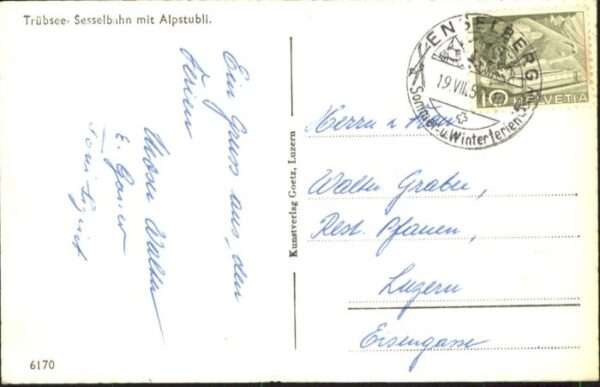 Trübsee- Sesselbahn mit Alpstubli.
Ein Gruss aus den
Ferien
Walter
6170
Kunstverlag Goetz, Luzern
ENGELBERG
19.VII.5
Sommer- u. Winterferien
10 HELVETIA
Herrn u. Frau
Walter Graber,
Rest. Pfauen,
Luzern
Eisengasse